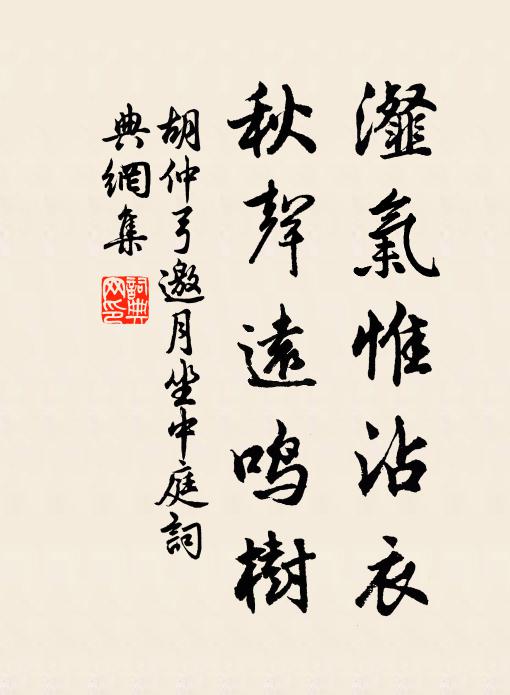 瀣氣惟沾衣
秋聲遠鳴樹
胡仲弓邀月坐中庭詞
典網集
詞典
网印